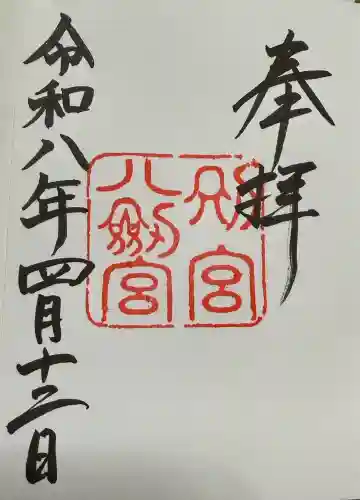 奉拝
別宮
八劔宮
令和八年四月十二日